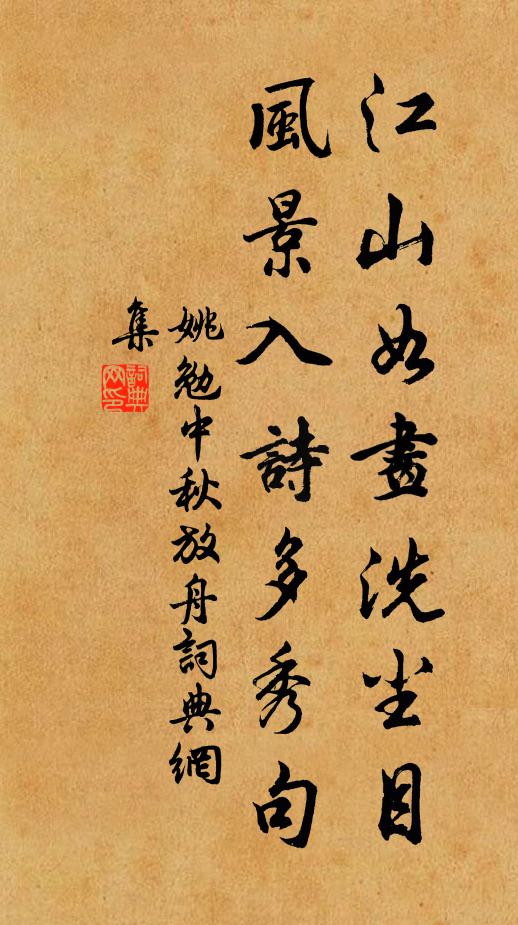 江山如畫洗尘目
風景入詩多秀句
姚勉中秋放舟詞典網
集
詞典
网印